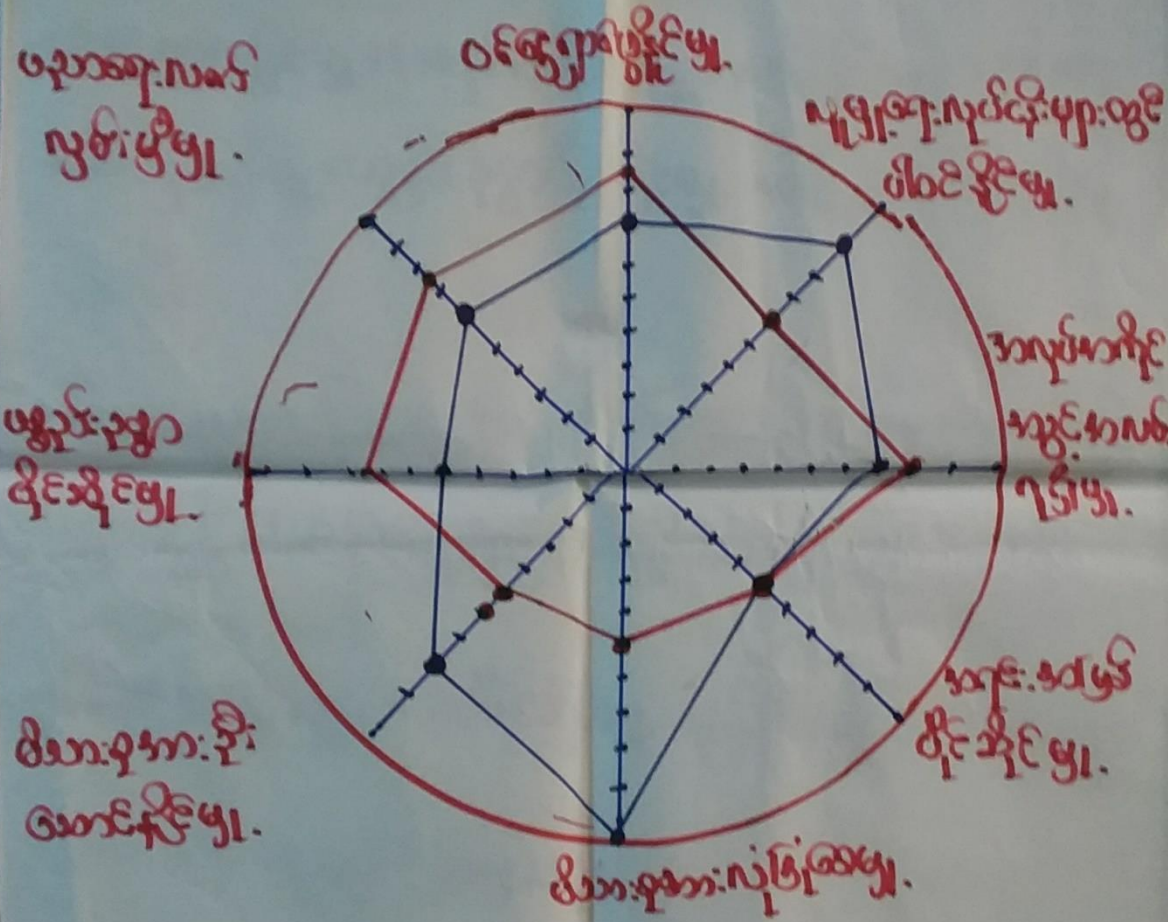 ဝင်ငွေရှာဖွေနိုင်မှု.
လူမှုရေးလုပ်ငန်းများတွင်
ပါဝင်နိုင်မှု.
အလုပ်အကိုင်
အခွင့်အလမ်း
ရရှိမှု.
အရင်းအမြစ်
ပိုင်ဆိုင်မှု.
မိသားစုအားလုံခြုံစေမှု.
မိသားစုအားဦး
ဆောင်နိုင်မှု.
ပစ္စည်းဥစ္စာ
ပိုင်ဆိုင်မှု.
ပညာရေးလမ်း
လွှမ်းမိုးမှု.